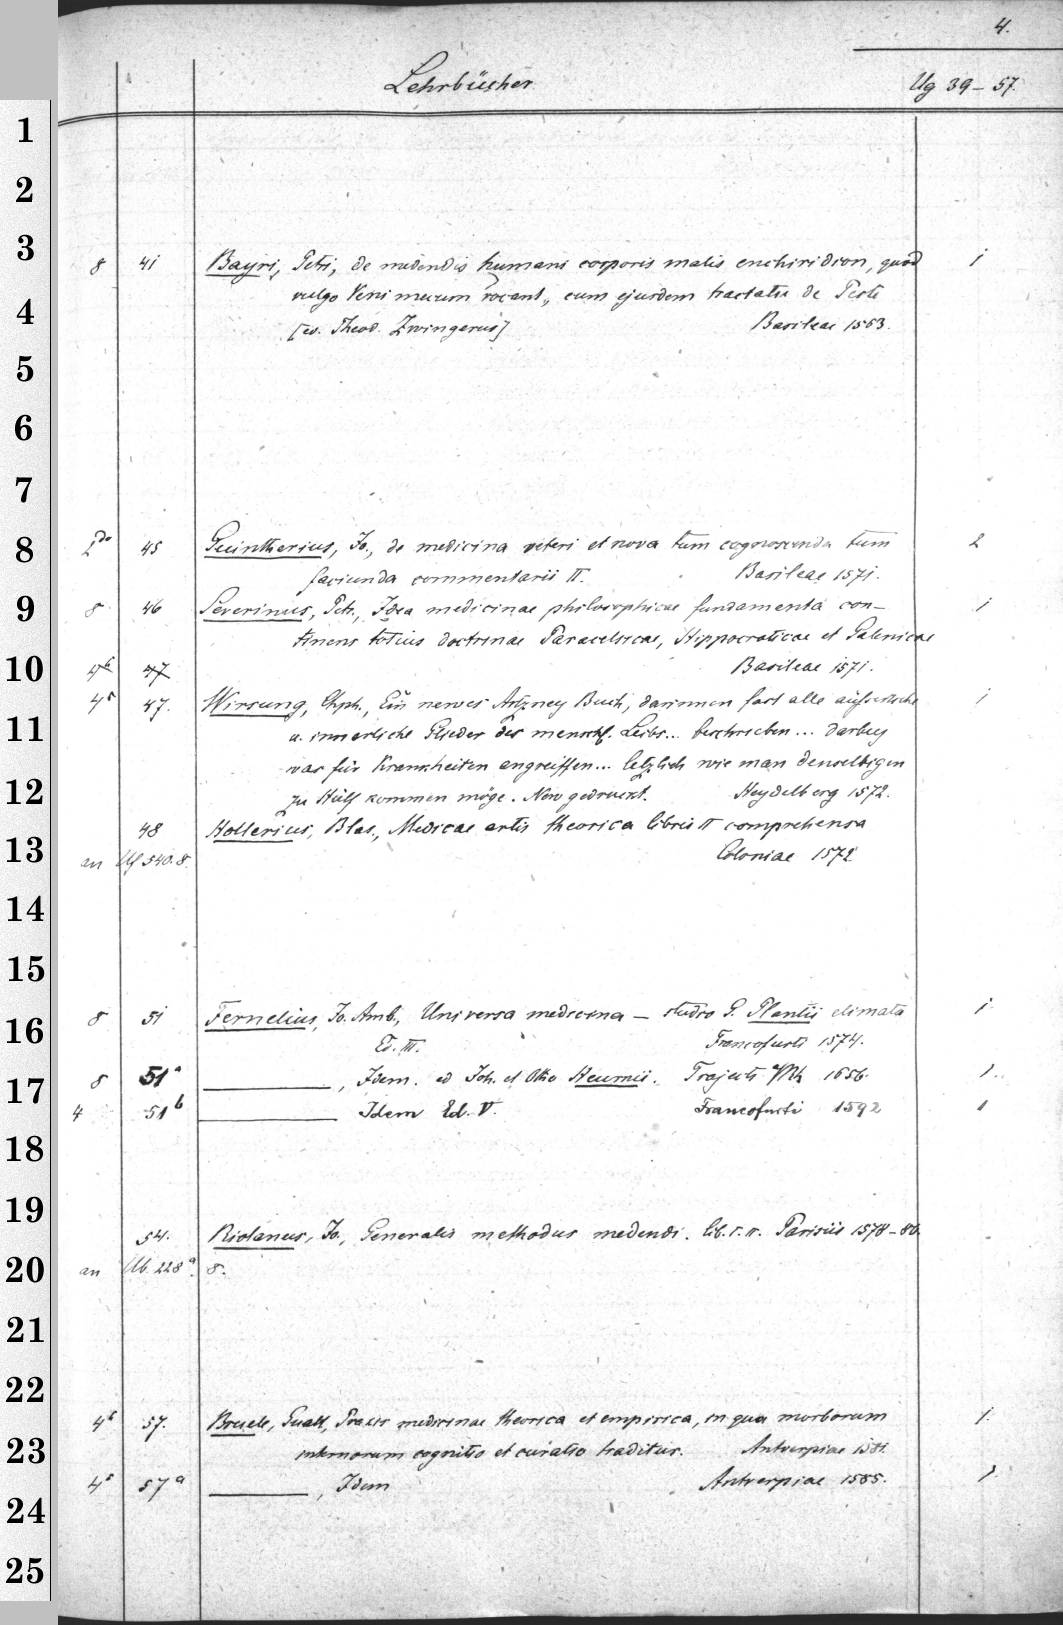 4.
Lehrbücher. Ug 39-57.
1
2
3
8 41 Bayri, Petri, de medendis humani corporis malis enchiridion, quod 1
vulgo Veni mecum vocant, cum ejusdem tractatu de Peste
4
[ed. Theod. Zwingerus] Basileae 1563.
5
6
7
8
2do 45 Guintherius, Jo., de medicina veteri et nova tum cognoscenda tum 2
faciunda commentarii II. Basileae 1571.
9
8 46 Severinus, Petr., Idea medicinae philosophicae fundamenta con- 1
tinens totius doctrinae Paracelsicae, Hippocraticae et Galenicae
10
47 Basileae 1571.
4° 47. Wirsung, Chph., Ein newes Artzney Buch, darinnen fast alle äusserliche 1
11
u. innerliche Glieder des menschl. Leibs... beschrieben... darbey
was für Krankheiten angreiffen... letzlich wie man denselbigen
12
zu Hülf kommen möge. New gedruckt. Heydelberg 1572.
48 Hollerius, Blas., Medicae artis theorica libris II comprehensa
13
an Uf 540. 8. Coloniae 1572
14
15
8 51 Fernelius, Jo. Amb., Universa medicina - studio G. Plantii elimata 1.
16
Ed. III. Francofurti 1574.
17
8 51a , Idem. ed Joh. et Otho Heurnii. Trajecti 1656. 1.
4 51b Idem Ed. V. Francofurti 1592 1
18
19
54. Riolanus, Jo., Generalis methodus medendi. lib. I. II. Parisiis 1578-80.
20
an Ub. 228a. 8.
21
22
57. Bruele, Gualt, Praxis medicinae theorica et empirica, in qua morborum 1.
23
internorum cognitio et curatio traditur. Antverpiae 1581.
57a , Idem Antverpiae 1585. 1.
24
25